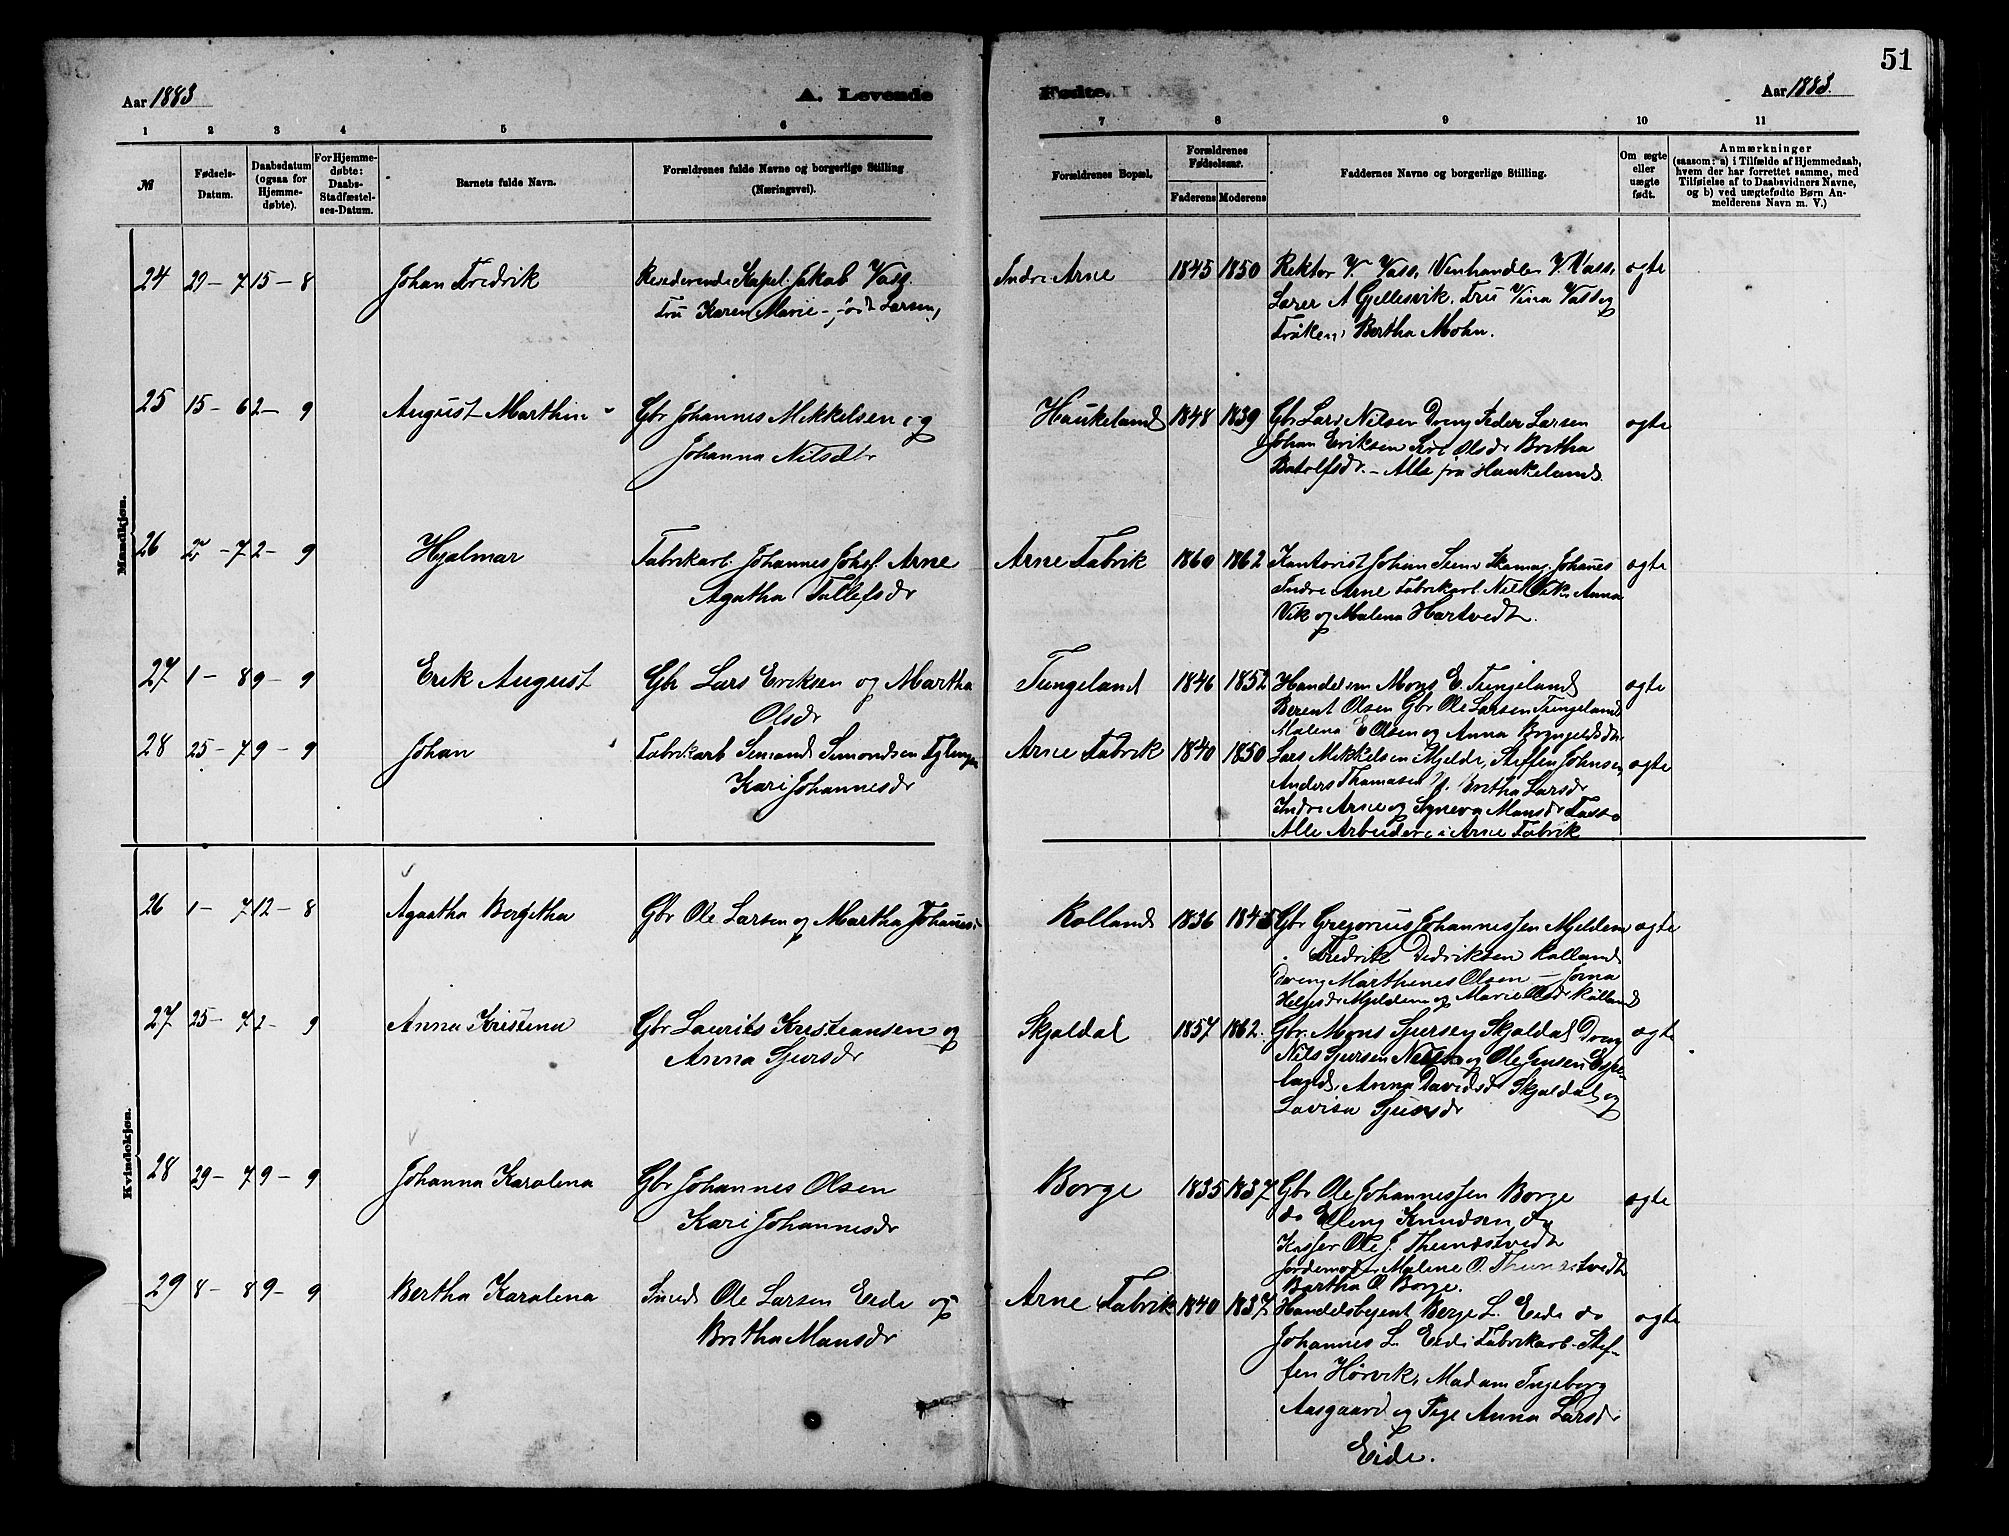 51
Aar 1883
A. Levende
Fødte.
Aar 1883.
1 2 3 4 5 6 7 8 9 10 11
№
Fødsels-
Datum.
Daabsdatum
(ogsaa for
Hjemme-
døbte).
For Hjemme-
døbte:
Daabs-
Stadfæstel-
ses-Datum.
Barnets fulde Navn.
Forældrenes fulde Navne og borgerlige Stilling
(Næringsvei).
Forældrenes Bopæl.
Forældrenes
Fødselsaar.
Faderens
Moderens
Faddernes Navne og borgerlige Stilling.
Om ægte
eller
uægte
født.
Anmærkninger
(saasom: a) i Tilfælde af Hjemmedaab,
hvem der har forrettet samme, med
Tilføielse af to Daabsvidners Navne,
og b) ved uægtefødte Børn An-
melderens Navn m. V.)
Mandkjøn.
24 29-7 15-8 Johan Fredrik
Residerende Kapel. Jakob Vass.
Fru Karen Marie født Larsen,
Indre Arne 1845 1850
Rektor V. Vass, Vinhandler V. Vass,
Lærer A Gjellesvik, Fru Vina Vass og
Frøken Bertha Mohn.
ægte
25 15-6 2-9 August Marthin
Gbr Johannes Mikkelsen og
Johanna Nilsdtr
Haukeland 1848 1839
Gbr Lars Nilsen Dreng Peder Larsen
Johan Eriksen Siri Olsdr Britha
Botolfsdr. - Alle fra Haukeland.
ægte
26 7 2-9 Hjalmar
Fabrikarb. Johannes Johs. Arne
Agatha Tollefsdr
Arne Fabrik 1860 1862
Kontorist Johan Skomag. Johanes
Indre Arne Fabrikarb. Nils Vik, Anna
Vik og Malena Hartvedt.
ægte
27 1-8 9-9 Erik August
Gbr Lars Eriksen og Martha
Olsdr
Tungeland 1846 1852
Handelsm Mons E. Tungeland
Berent Olsen Gbr Ole Larsen Tungeland
Malena E Olsen og Anna Brynjelsdtr
ægte
28 25-7 9-9 Johan
Fabrikarb Simond Simondsen
Kari Johannesdr
Arne Fabrik 1840 1850
Lars Mikkelsen Mjelde, Steffen Johnsen
Anders Thomasen Britha Larsdr
Indre Arne og Synneva Monsdr
Alle Arbeidere i Arne Fabrik
ægte
Kvindekjøn.
26 1-7 12-8 Agaatha Bergitha
Gbr Ole Larsen og Martha Johanes
Rolland 1836 1845
Gbr Gregorius Johannessen Mjeldem
Fredrik Didriksen Rolland
Dreng Marthenes Olsen - Jorna
Helgesdr Mjeldem og Marie Olsdr Rolland
ægte
27 25-7 2-9 Anna Kristina
Gbr Laurits Kristiansen og
Anna Sjursdr
Skjoldal 1857 1862.
Gbr. Mons Sjursen Skjoldal Dreng
Nils Sjursen og Ole Jensen Espe-
land, Anna Davidsdr Skjoldal og
Lovisa Sjursdr
ægte
28 29-7 9-9 Johanna Karolena
Gbr Johannes Olsen
Kari Johannesdr
Borge 1835 1837
Gbr Ole Johannessen Borge
do Elling Knudsen do
Ole J. Thunestvedt
Jordemoder Malene O. Thunestvedt
Bertha O Borge.
ægte
29 8-8 9-9 Bertha Karolena
Smed Ole Larsen Eide og
Britha Monsdr
Arne Fabrik 1840 1837
Handelsbetjent Berge L. Eide do
Johannes L. Eide Fabrikarb. Stef-
fen Hørvik, Madam Ingeborg
Aasgaard og Pige Anna Larsdr
Eide.
ægte